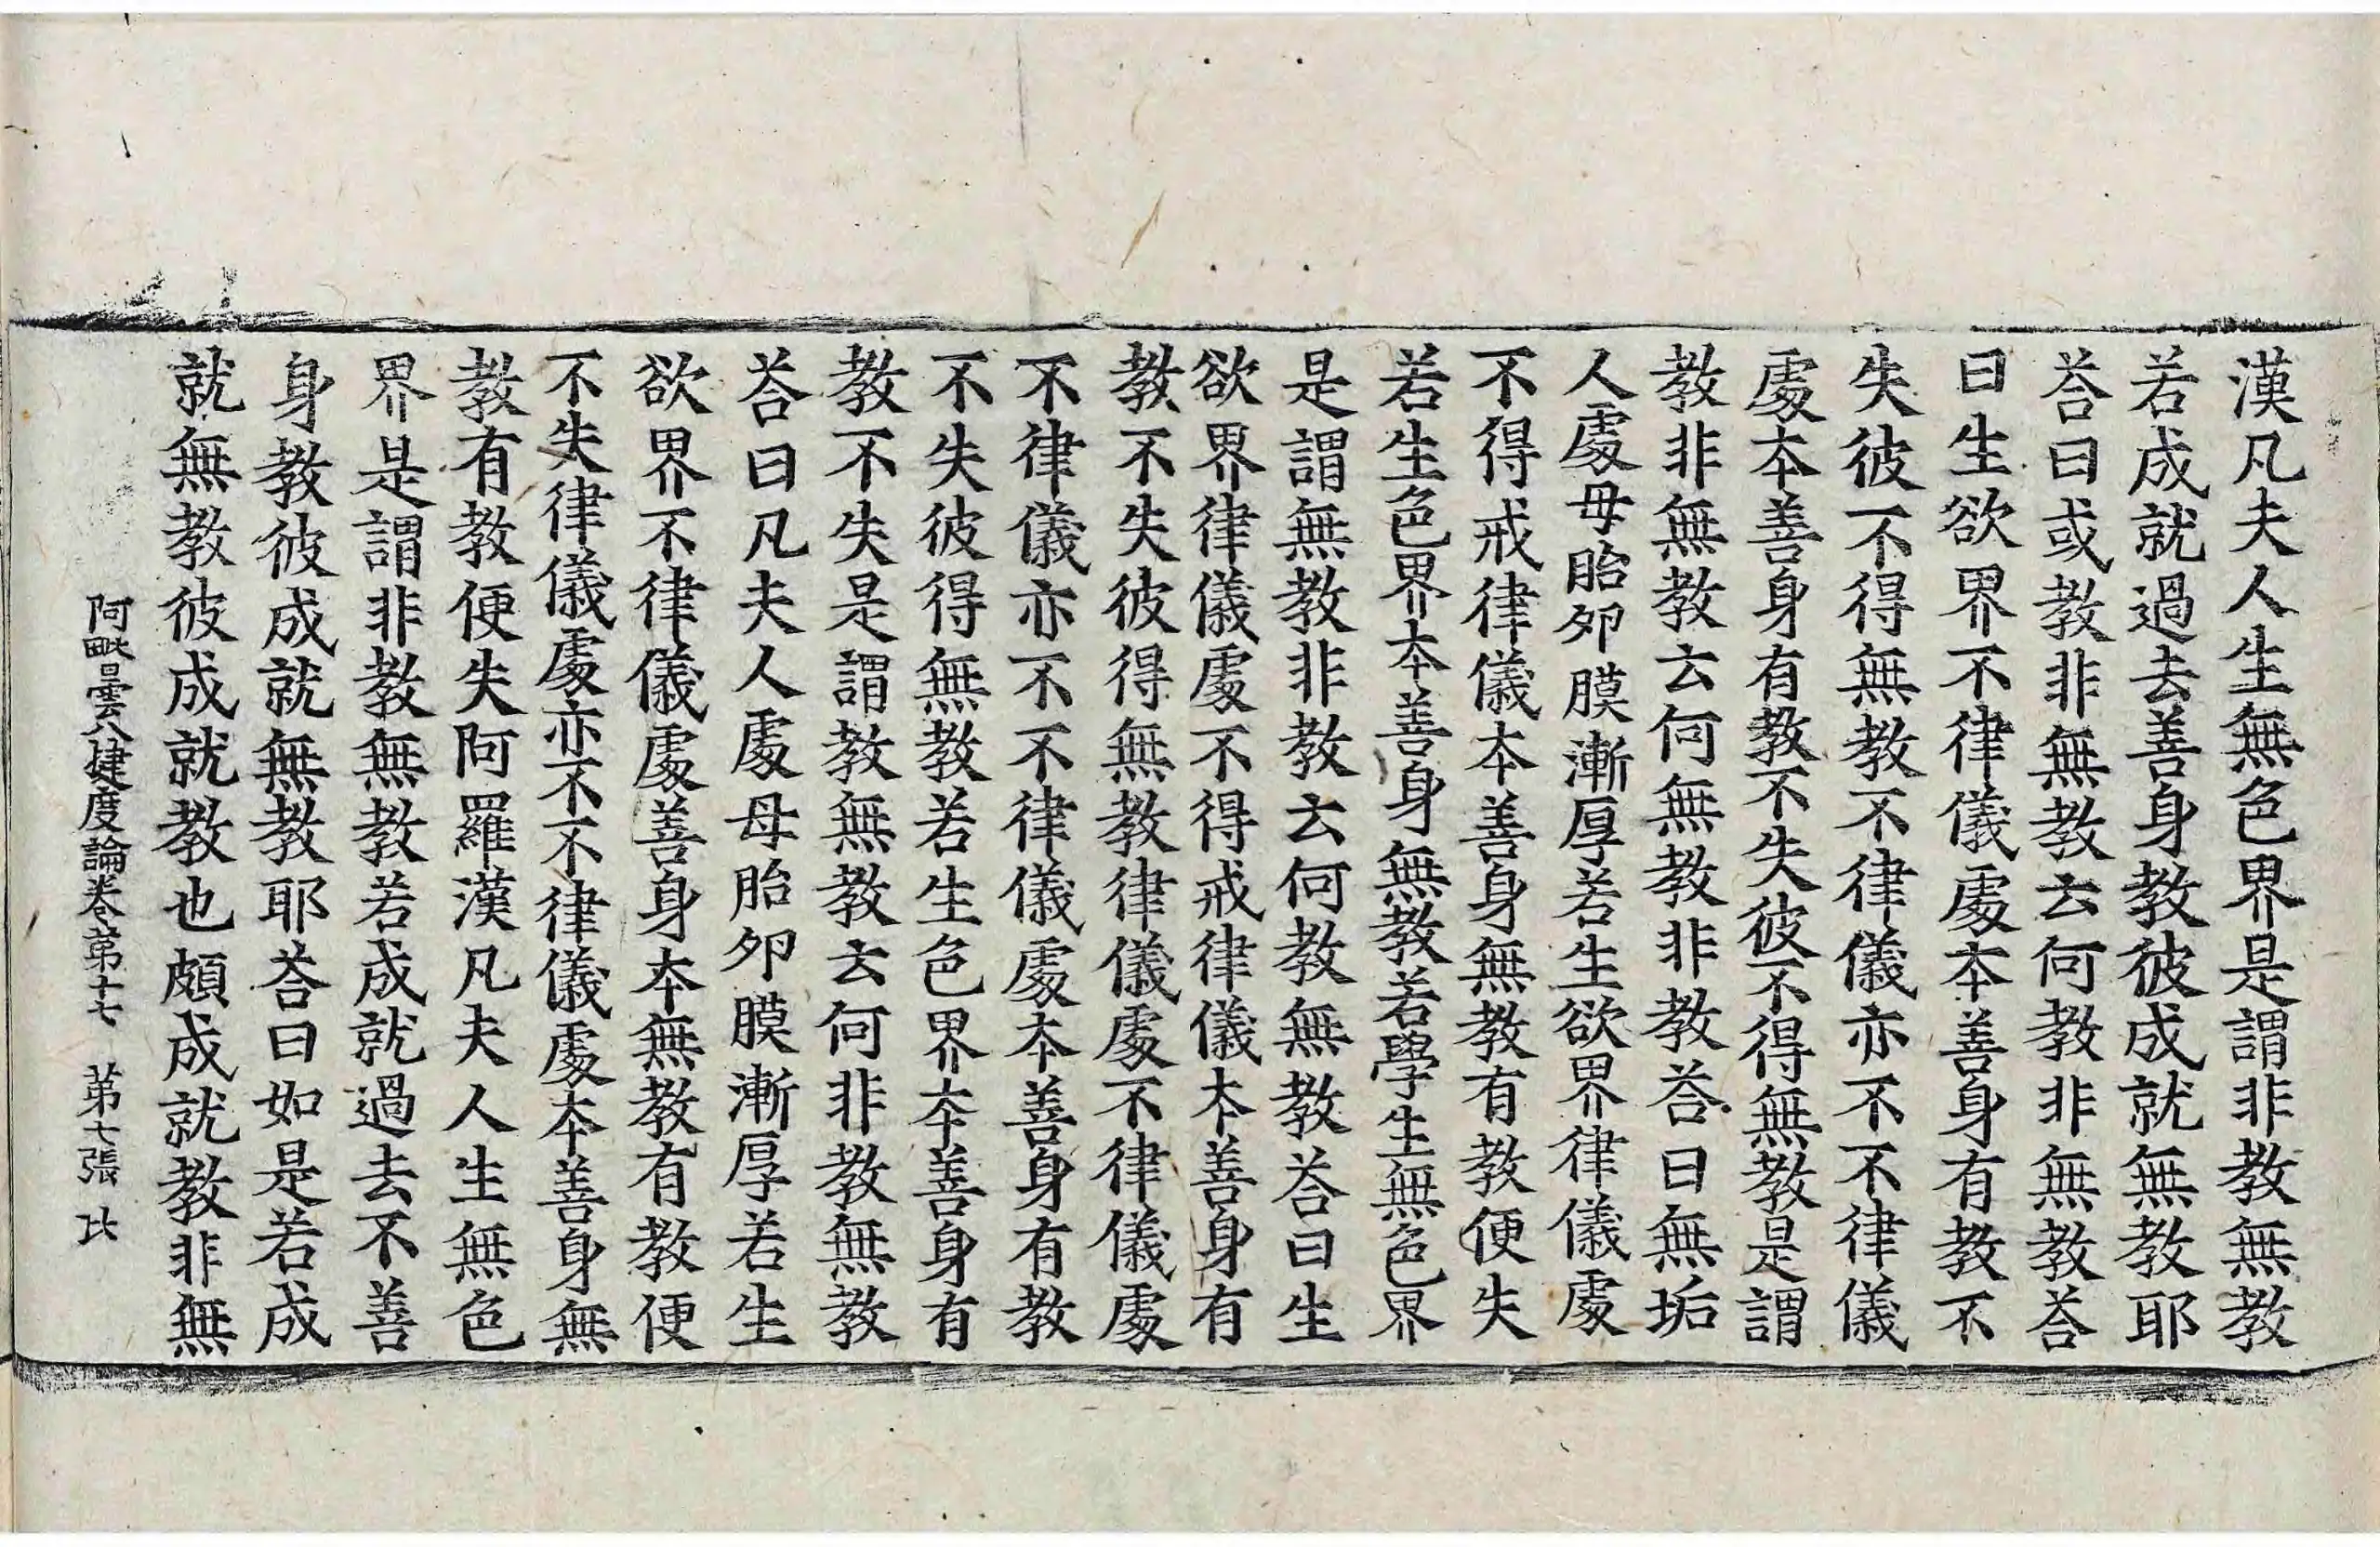 漢凡夫人生無色界是謂非教無教
若成就過去善身教彼成就無教耶
荅曰或教非無教云何教非無教荅
曰生欲界不律儀處本善身有教不
失彼不得無教不律儀亦不不律儀
處本善身有教不失彼不得無教是謂
教非無教云何無教非教荅曰無垢
人處母胎夘膜漸厚若生欲界律儀處
不得戒律儀本善身無教有教便失
若生色界本善身無教若學生無色界
是謂無教非教云何教無教荅曰生
欲界律儀處不得戒律儀本善身有
教不失彼得無教律儀處不律儀處
不律儀亦不不律儀處本善身有教
不失彼得無教若生色界本善身有
教不失是謂教無教云何非教無教
荅曰凡夫人處母胎夘膜漸厚若生
欲界不律儀處善身本無教有教便
不失律儀處亦不不律儀處本善身無
教有教便失阿羅漢凡夫人生無色
界是謂非教無教若成就過去不善
身教彼成就無教耶荅曰如是若成
就無教彼成就教也頗成就教非無
阿毗曇八揵度論卷第十七 第七張 比